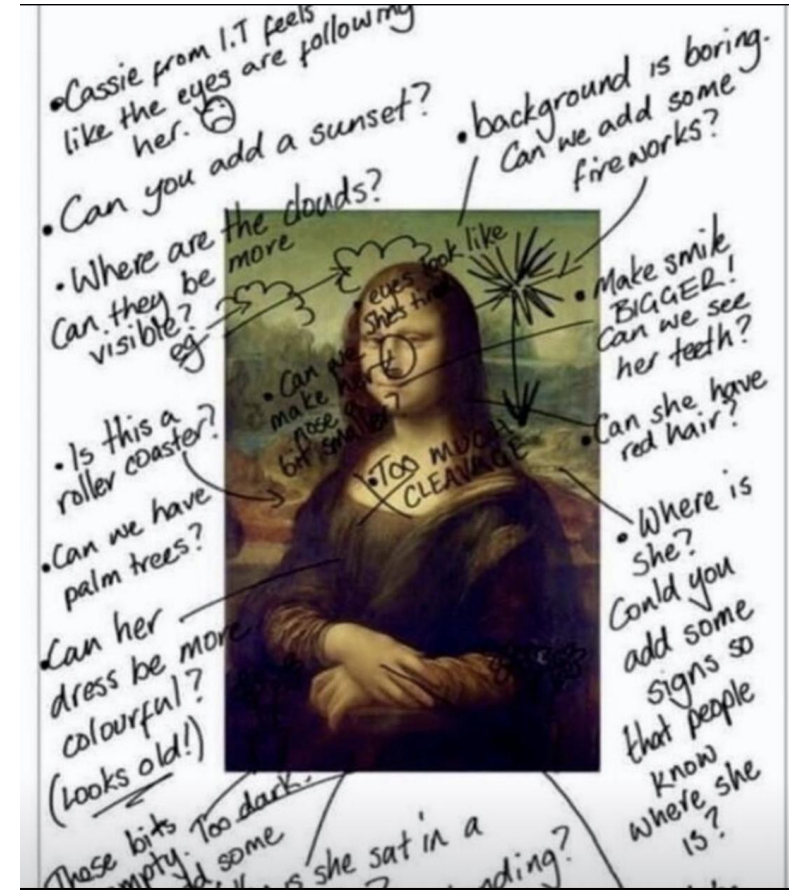 •Cassie from I.T feels
like the eyes are following
her.
•Can you add a sunset?
•Where are the clouds?
Can they be more
visible?
eg
•background is boring.
Can we add some
fireworks?
•eyes look like
she's tired
•Make smile
BIGGER!
Can we see
her teeth?
•Can we
make her
nose a
bit smaller?
•Can she have
red hair?
•TOO MUCH
CLEAVAGE
•Is this a
roller coaster?
•Can we have
palm trees?
•Where is
she?
Could you
add some
signs so
that people
know
where she
is?
•Can her
dress be more
colourful?
(Looks old!)
Too dark.
These bits
some
she sat in a